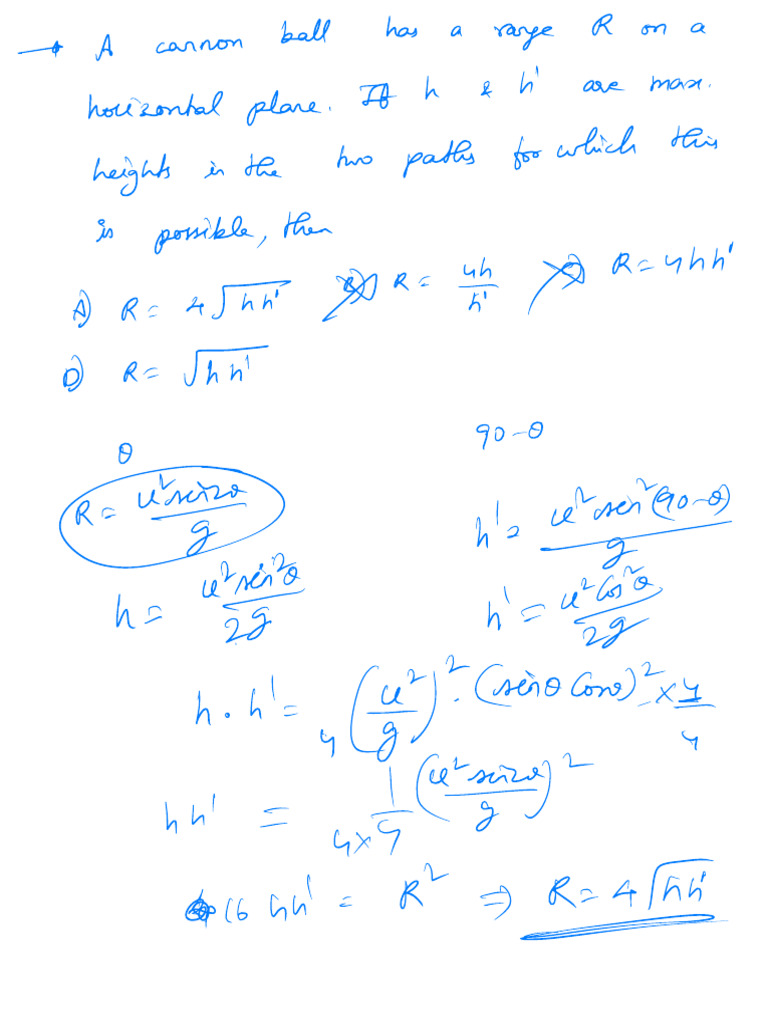 → A cannon ball has a range R on a
horizontal plane. If h & h' are max.
heights in the two paths for which this
is possible, then
A) R = 4√hh' B) R = 4h/h' C) R = 4hh'
D) R = √hh'
θ 90-θ
R = u²sin2θ/g h' = u²sin²(90-θ)/g
h = u²sin²θ/2g h' = u²cos²θ/2g
h . h' = 4 (u²/g)² . (sinθ cosθ)² × 4/4
hh' = 1/4×4 (u²sin2θ/g)²
16 hh' = R² ⇒ R = 4√hh'